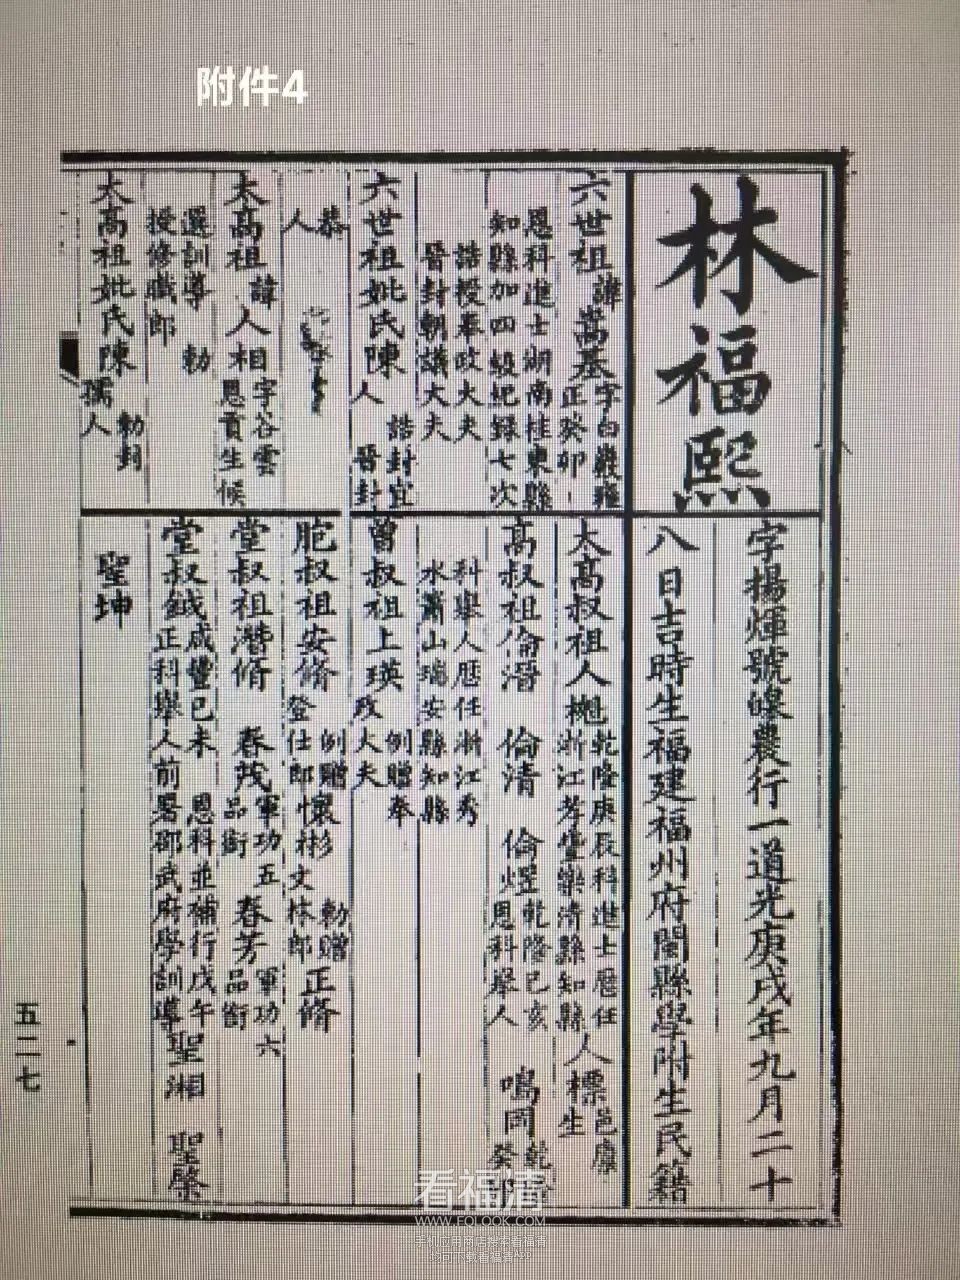 附件4
林福熙
字揚煇號皞農行一道光庚戌年九月二十
八日吉時生福建福州府閩縣學附生民籍
六世祖諱嵩基字白巖雍
正癸卯
恩科進士湖南桂東縣
知縣加四級紀錄七次
誥授奉政大夫
晉封朝議大夫
六世祖妣氏陳誥封宜
人晉封
恭
人
太高祖諱人相字谷雲
恩貢生候
選訓導勅
授修職郎
太高祖妣氏陳勅封
孺人
太高叔祖人𣝕乾隆庚辰科進士歷任
浙江芳豐樂清縣知縣人標邑廩
生
高叔祖倫潛倫清倫煜乾隆己亥
恩科舉人鳴岡乾隆
癸卯
科舉人歷任浙江秀
水蕭山瑞安縣知縣
曾叔祖上瑛例贈奉
政大夫
胞叔祖安脩例贈
登仕郎懷彬勅贈
文林郎正脩
堂叔祖潛脩春茂軍功五
品銜春芳軍功六
品銜
堂叔鉞咸豐己未恩科並補行戊午
正科舉人前署邵武府學訓導聖湘聖棨
聖坤
五二七
看福清
WWW.FQLOOK.COM
手机应用商店搜索看福清